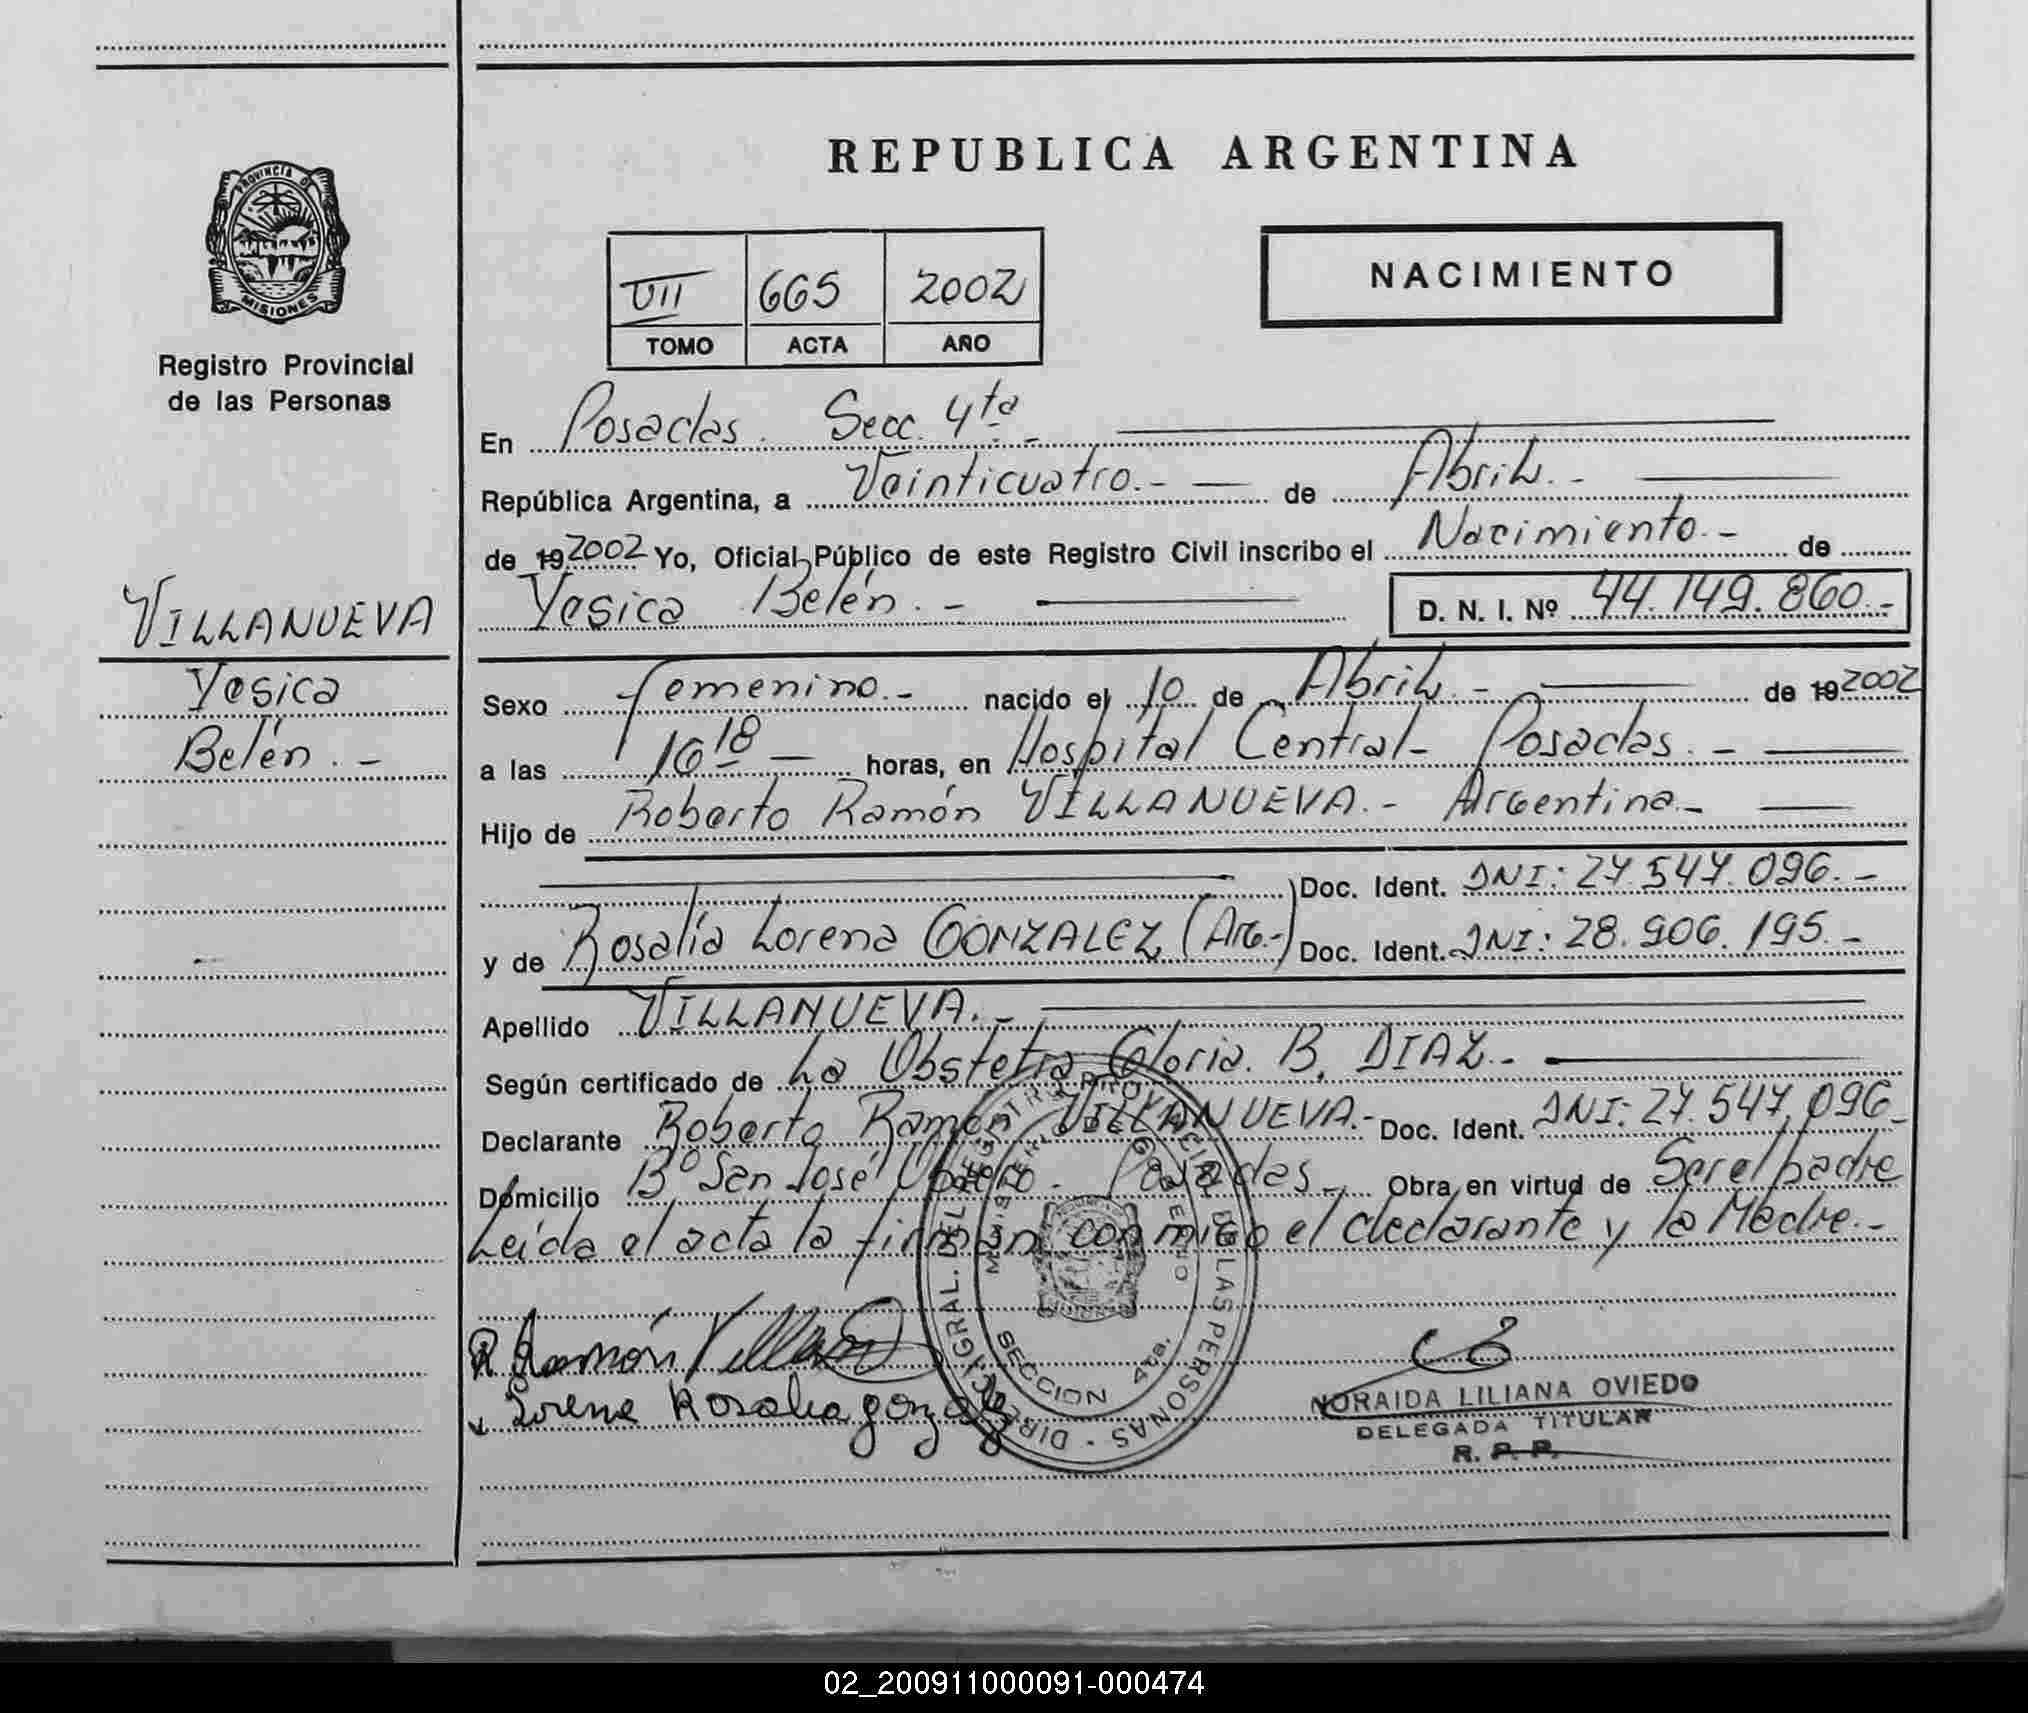 REPUBLICA ARGENTINA
PROVINCIA D
MISIONES
Registro Provincial
de las Personas
VII 665 2002
TOMO ACTA AÑO
NACIMIENTO
En Posadas. Secc. 4ta.-
República Argentina, a Veinticuatro.- de Abril.-
de 19 2002 Yo, Oficial Público de este Registro Civil inscribo el Nacimiento.- de
Yesica Belén.- D. N. I. Nº 44.149.860.-
VILLANUEVA
Yesica
Belén.-
Sexo femenino.- nacido el 10 de Abril.- de 19 2002
a las 16 18 horas, en Hospital Central- Posadas.-
Hijo de Roberto Ramón VILLANUEVA.- Argentina.-
Doc. Ident. DNI: 27.547.096.-
y de Rosalía Lorena GONZALEZ (Arg.-) Doc. Ident. DNI: 28.906.195.-
Apellido VILLANUEVA.-
Según certificado de La Obstetra Gloria. B. DIAZ.-
Declarante Roberto Ramón VILLANUEVA.- Doc. Ident. DNI: 27.547.096-
Domicilio Bº San José Obrero. Posadas.- Obra en virtud de Ser el padre
Leída el acta la firman conmigo el declarante y la Madre.-
R. Ramón
Lorena Rosalia gonzalez
SECCION 4ta.
NORAIDA LILIANA OVIEDO
DELEGADA TITULAR
R. P. P.
02_200911000091-000474